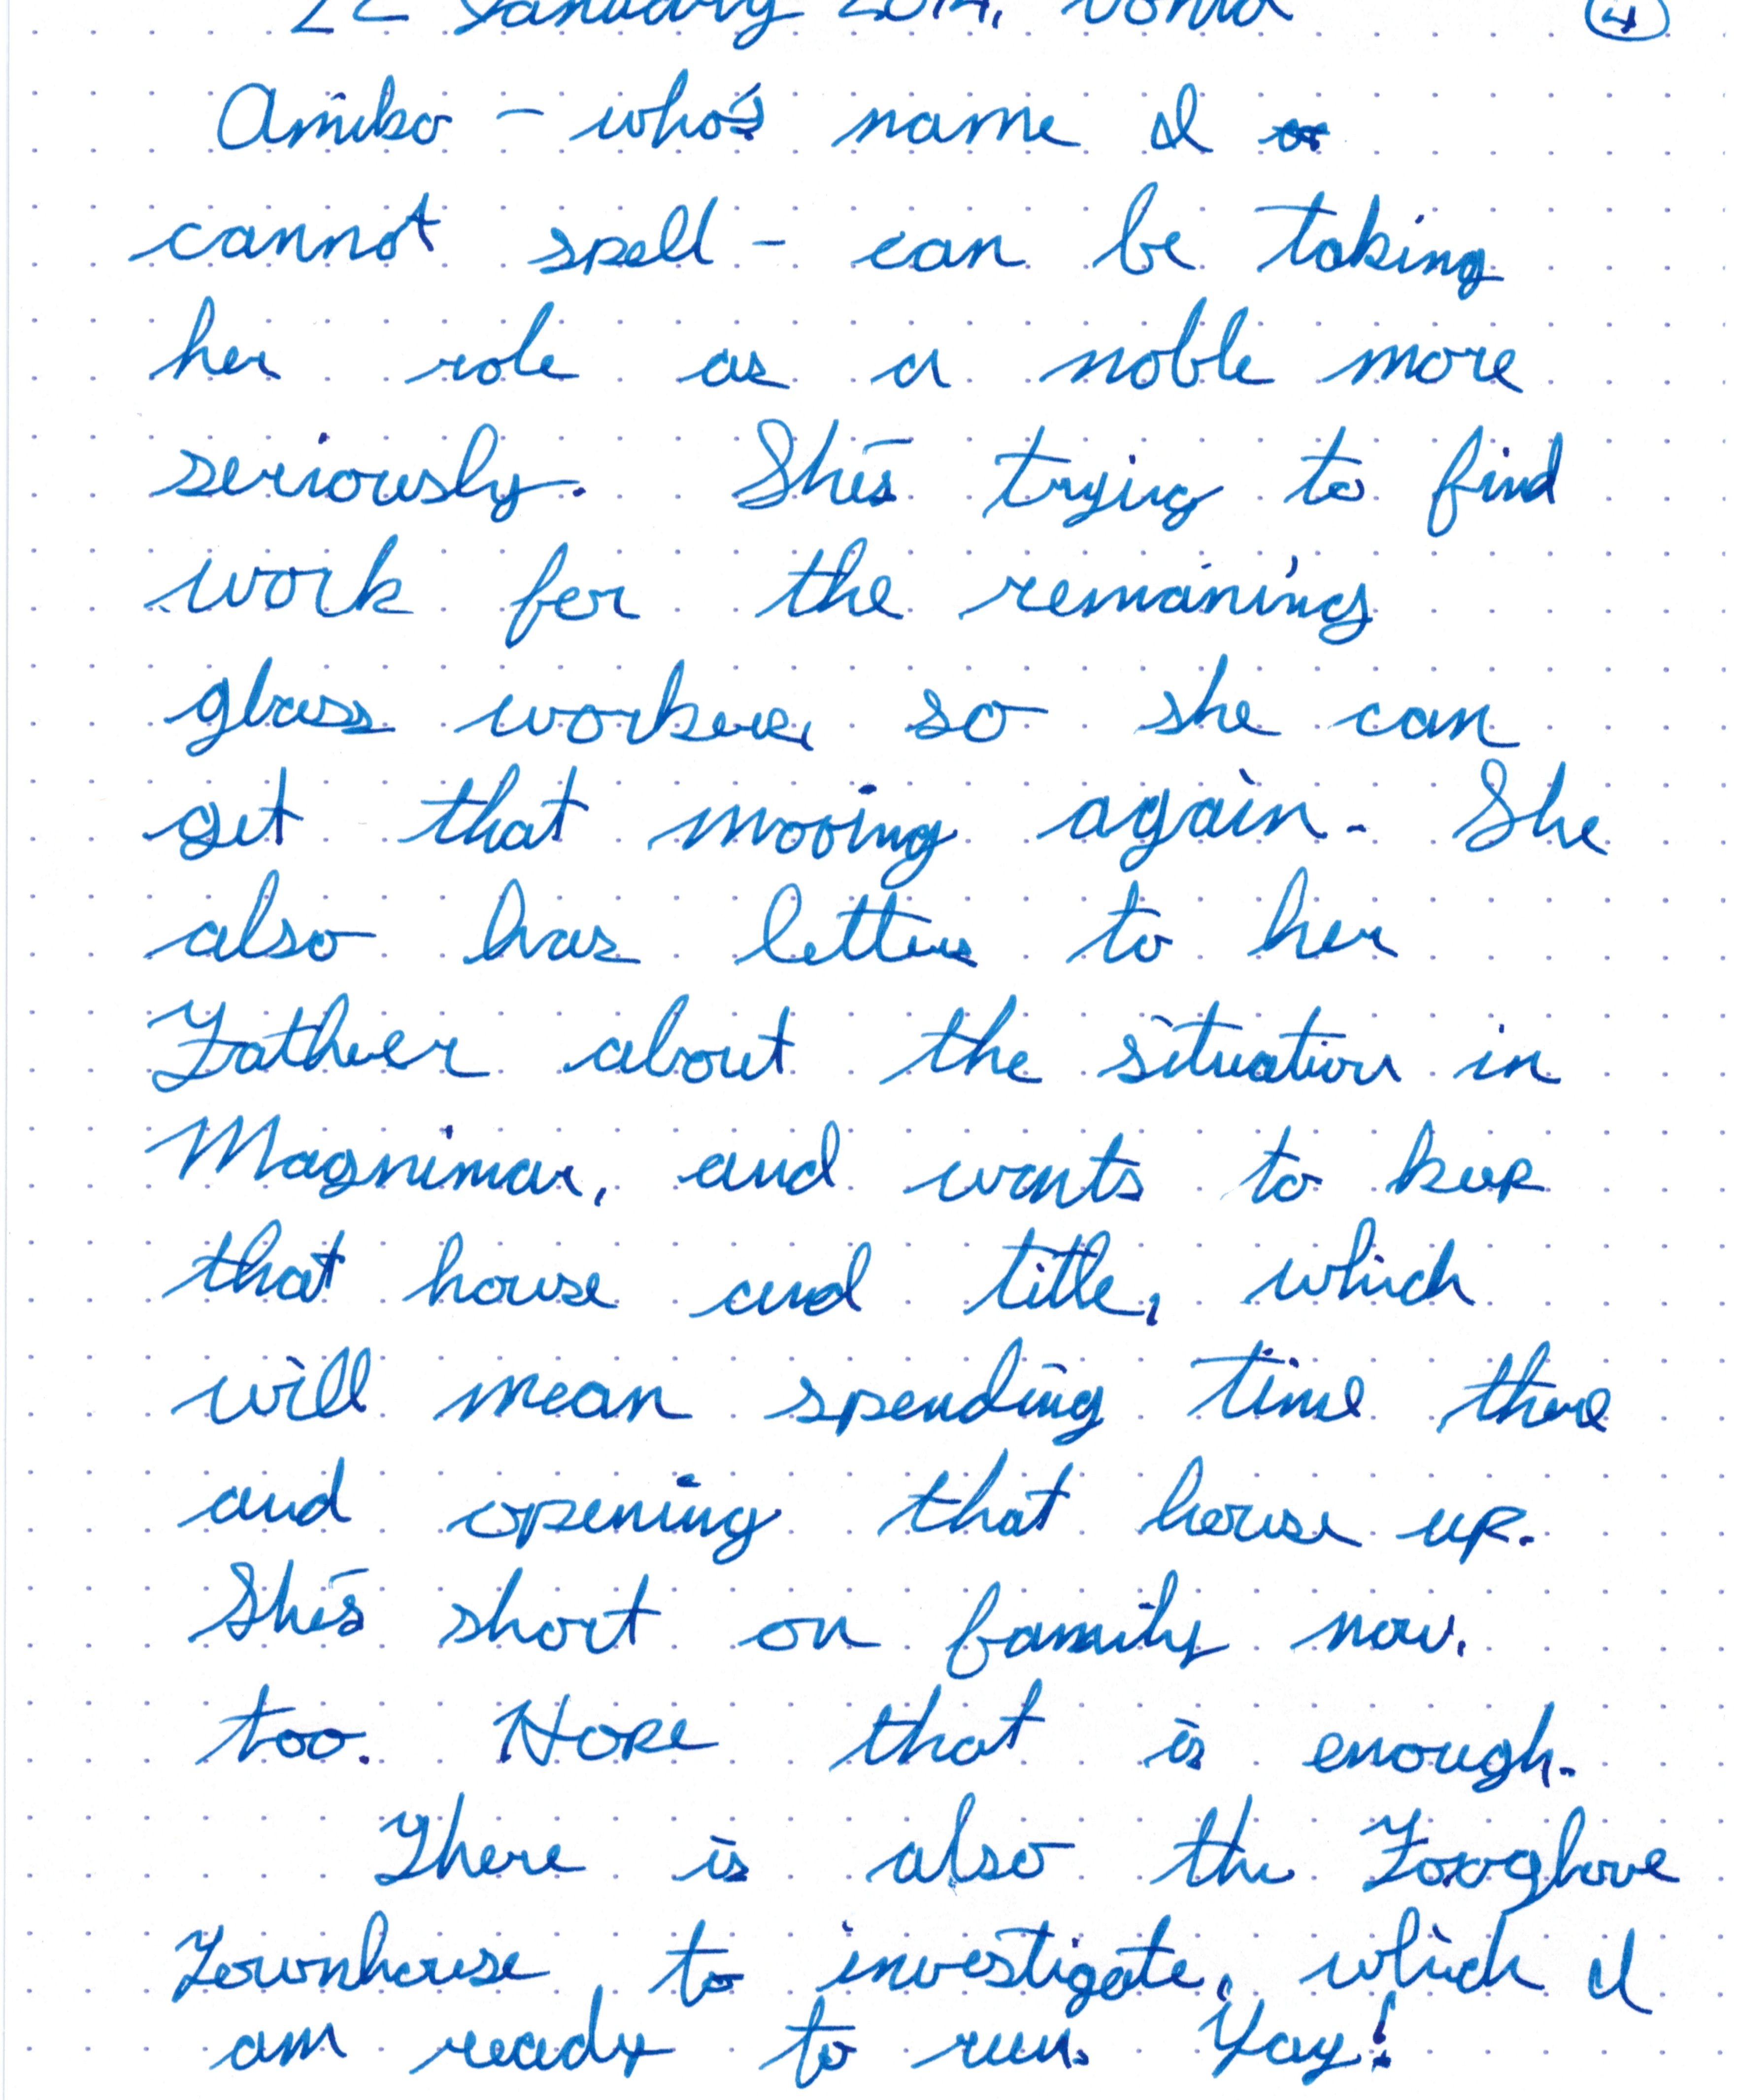 22 January 2014, 
4
Amiko - who's name I
cannot spell - can be taking
her role as a noble more
seriously. She's trying to find
work for the remaining
glass workers so she can
get that moving again. She
also has letters to her
Father about the situation in
Magnimar, and wants to keep
that house and title, which
will mean spending time there
and opening that house up.
She's short on family now,
too. Hope that is enough.
There is also the Foxglove
Townhouse to investigate, which I
am ready to run. Yay!